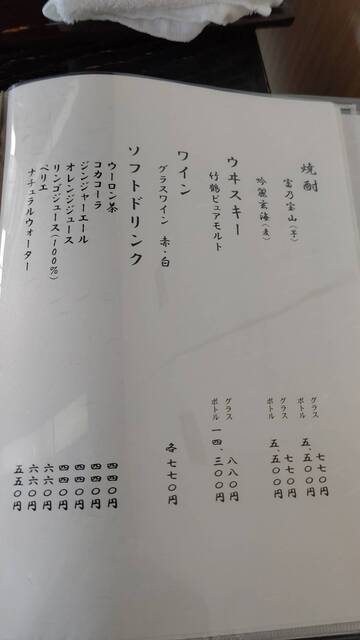 焼酎
富乃宝山（芋）
グラス 七七〇円
ボトル 五、五〇〇円
吟麗玄海（麦）
グラス 七七〇円
ボトル 五、五〇〇円
ウヰスキー
竹鶴ピュアモルト
グラス 八八〇円
ボトル 一四、三〇〇円
ワイン
グラスワイン 赤・白 各七七〇円
ソフトドリンク
ウーロン茶 四四〇円
コカコーラ 四四〇円
ジンジャーエール 四四〇円
オレンジジュース 四四〇円
リンゴジュース（100%） 六六〇円
ペリエ 六六〇円
ナチュラルウォーター 五五〇円